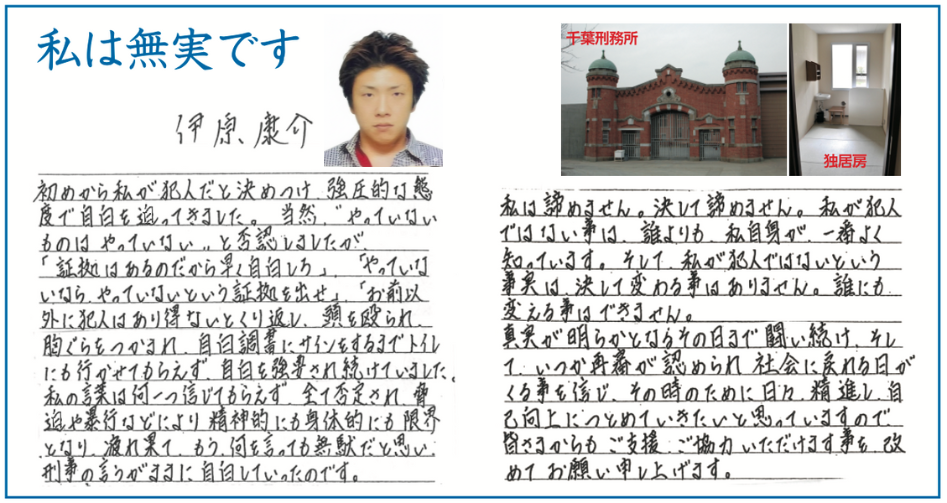 私は無実です
伊原康介
初めから私が犯人だと決めつけ、強圧的な態
度で自白を迫ってきました。当然、“やっていない
ものはやっていない”と否認しましたが、
「証拠はあるのだから早く自白しろ」、「やっていな
いなら、やっていないという証拠を出せ」「お前以
外に犯人はあり得ないとくり返し、頭を殴られ、
胸ぐらをつかまれ、自白調書にサインをするまでトイレ
にも行かせてもらえず、自白を強要され続けていました。
私の言葉は何一つ信じてもらえず、全て否定され、脅
迫や暴行などにより精神的にも身体的にも限界
となり、疲れ果て、もう、何を言っても無駄だと思い、
刑事の言うがままに自白していったのです。
千葉刑務所
独居房
私は諦めません。決して諦めません。私が犯人
ではない事は、誰よりも、私自身が、一番よく
知っています。そして、私が犯人ではないという
事実は、決して変わる事はありません。誰にも、
変える事はできません。
真実が明らかとなるその日まで闘い続け、そし
て、いつか再審が認められ、社会に戻れる日が
くる事を信じ、その時のために日々、精進し、自
己向上につとめていきたいと思っていますので、
皆さまからもご支援、ご協力いただけます事を、改
めてお願い申し上げます。